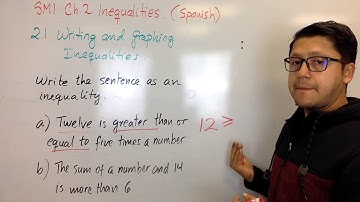 SM1 Ch.2 Inequalities. (Spanish)
2.1 Writing and Graphing
Inequalities.
Write the sentence as an
inequality.
a) Twelve is greater than or
equal to five times a number
12 ≥
b) The sum of a number and 14
is more than 6